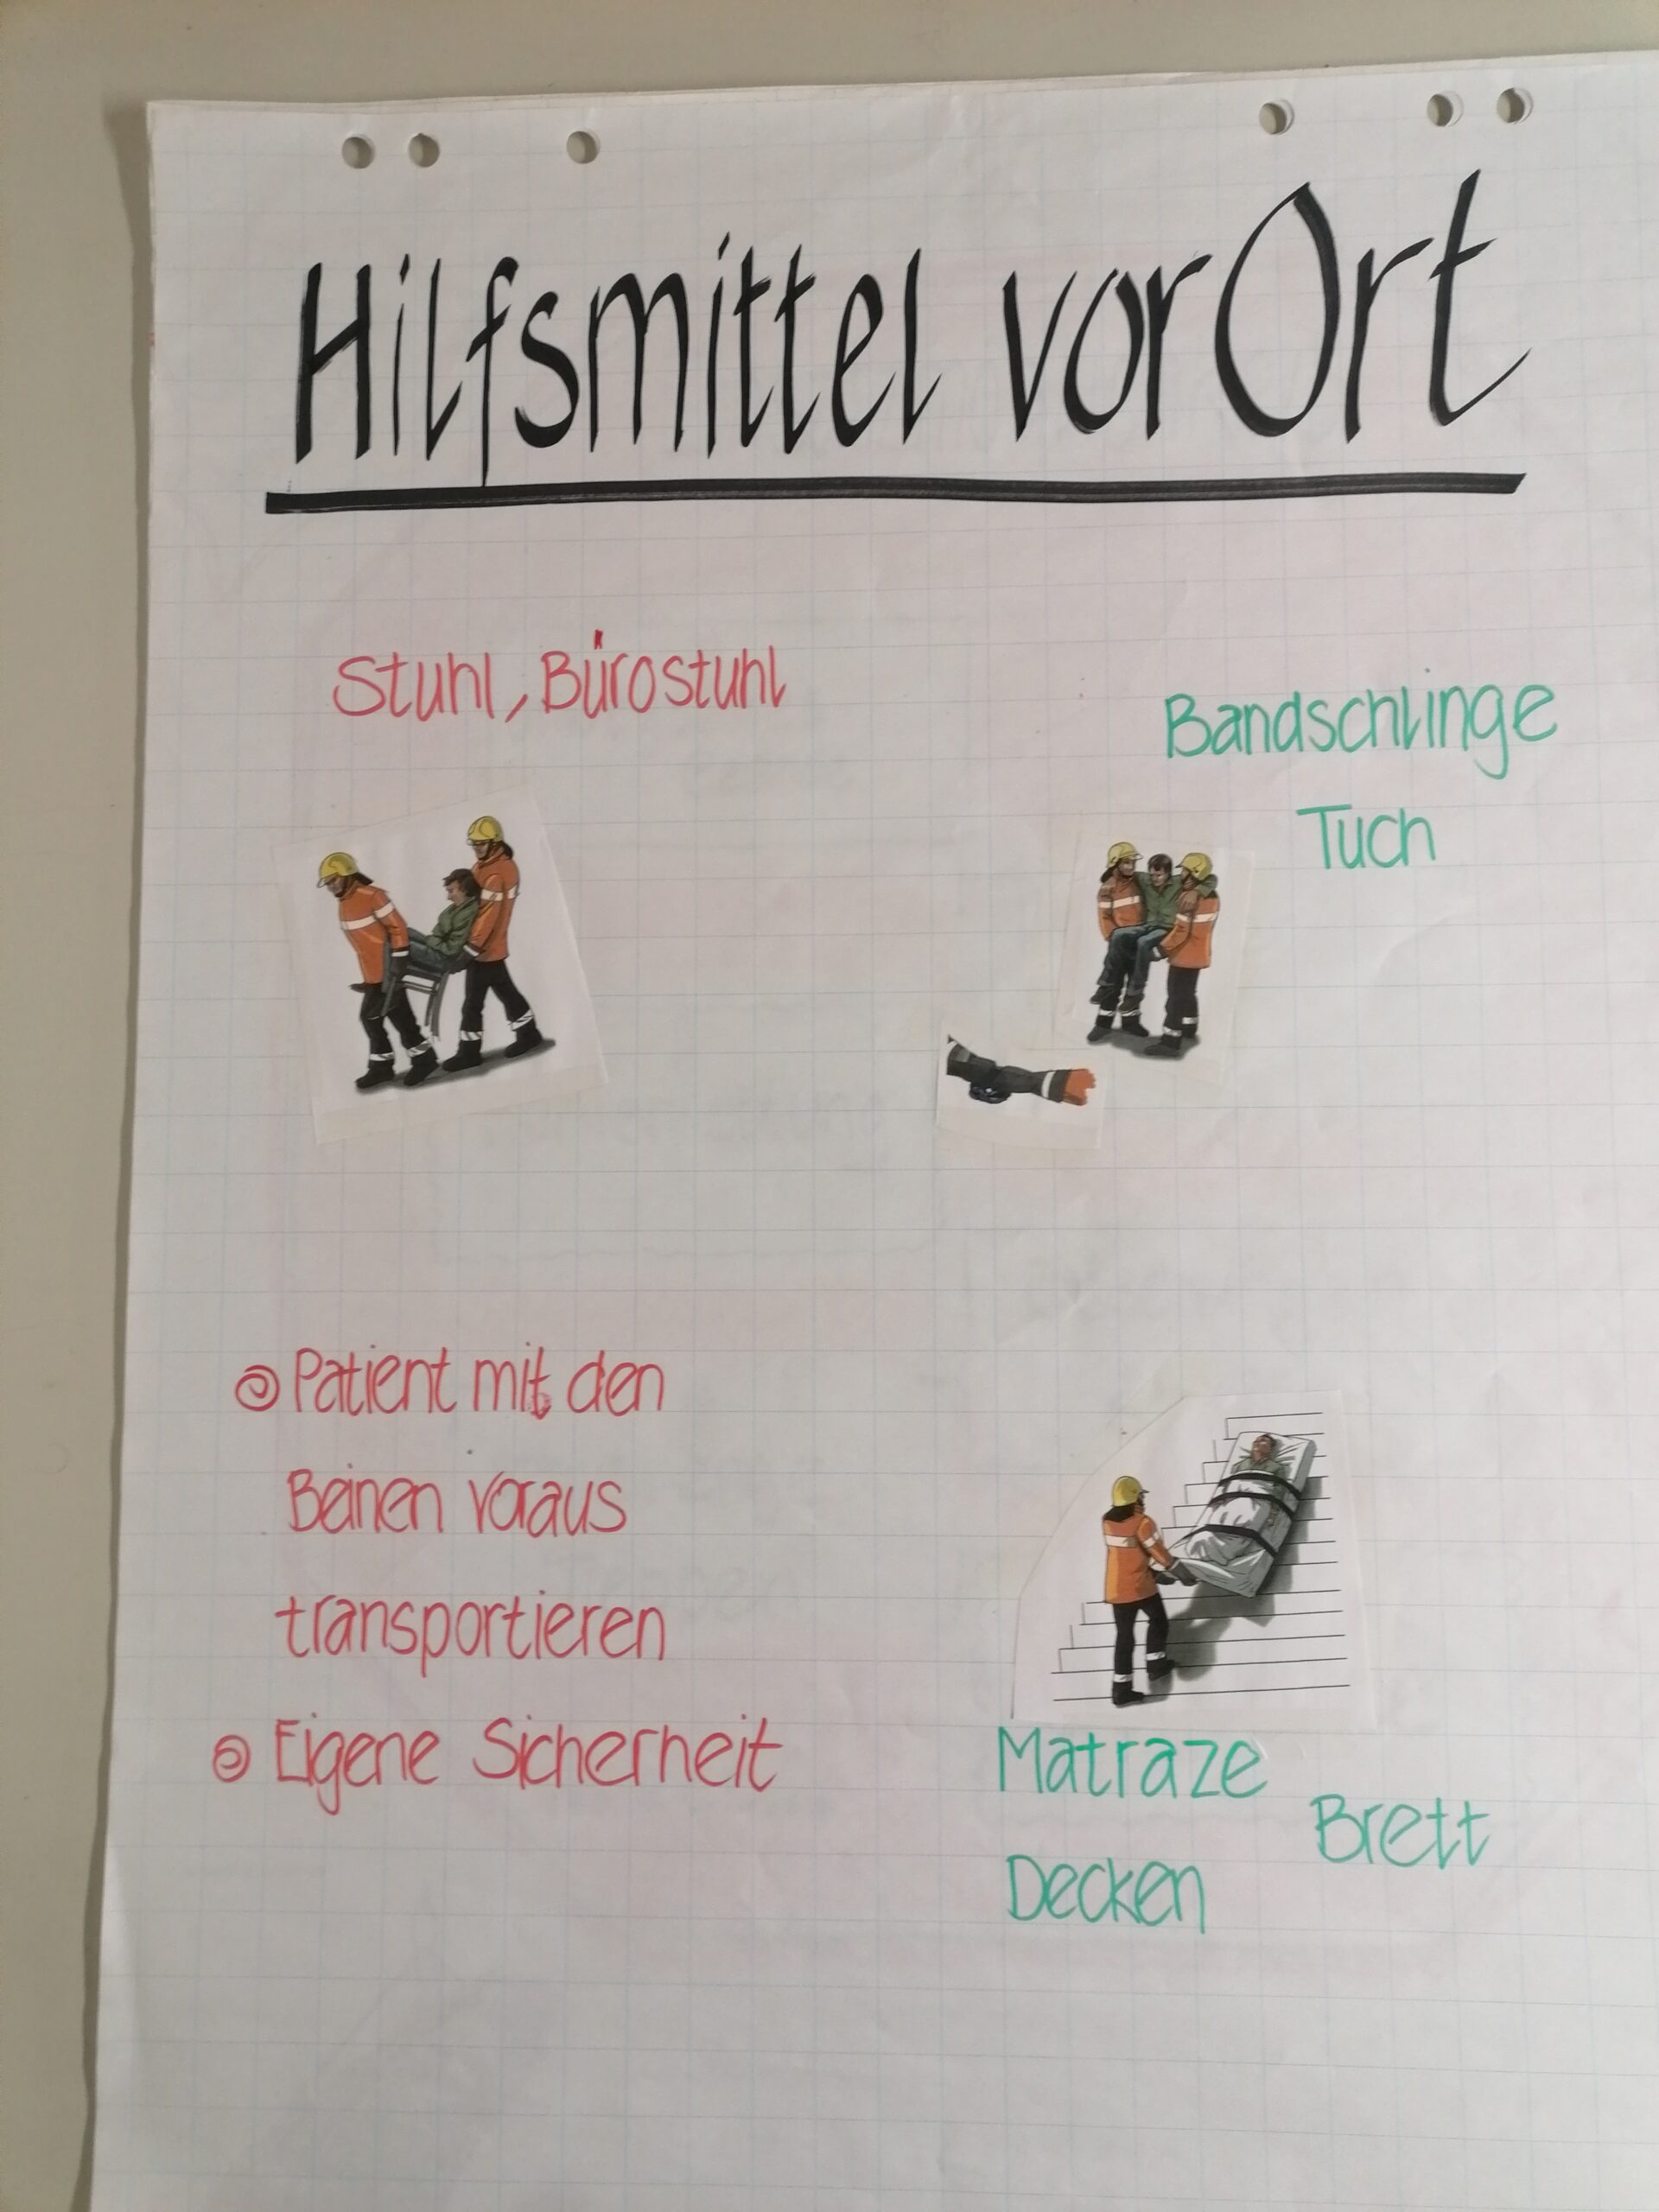 Hilfsmittel vor Ort
Stuhl, Bürostuhl
Bandschlinge
Tuch
Patient mit den
Beinen voraus
transportieren
Eigene Sicherheit
Matraze
Brett
Decken